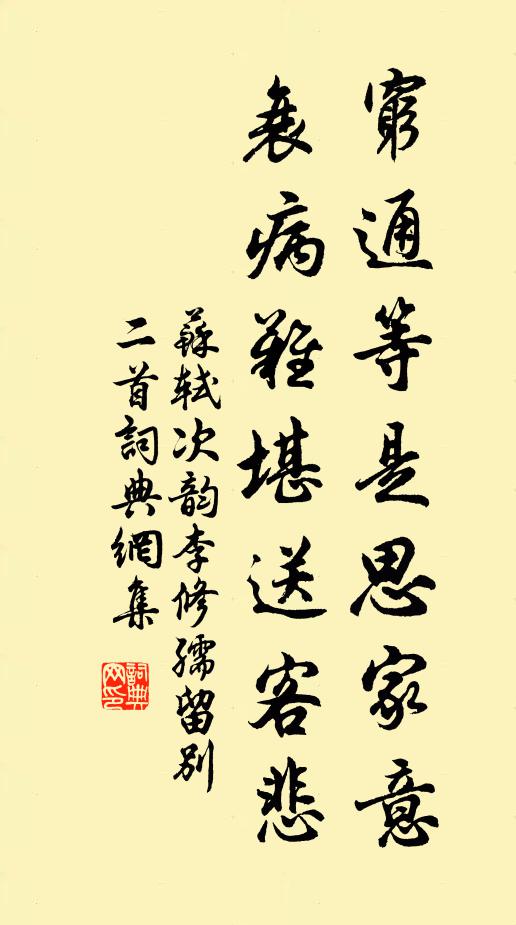 窮通等是思家意
衰病難堪送客悲
蘇軾次韵李修孺留別
二首詞典網集
詞典
网印